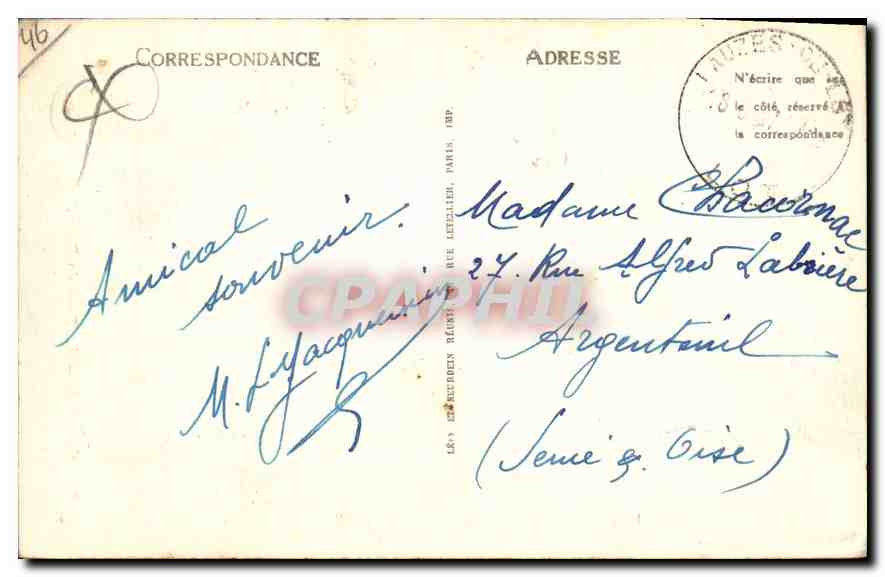 46
CORRESPONDANCE
ADRESSE
LAUZES
N'écrire que sur
le côté réservé à
la correspondance
Amical
souvenir.
M. L. Jacquemin
LÉVY ET NEURDEIN RÉUNIS, RUE LETELLIER, PARIS, IMP.
Madame Chacornac
27. Rue Alfred Labrière
Argenteuil
(Seine & Oise)
CPAPHIL